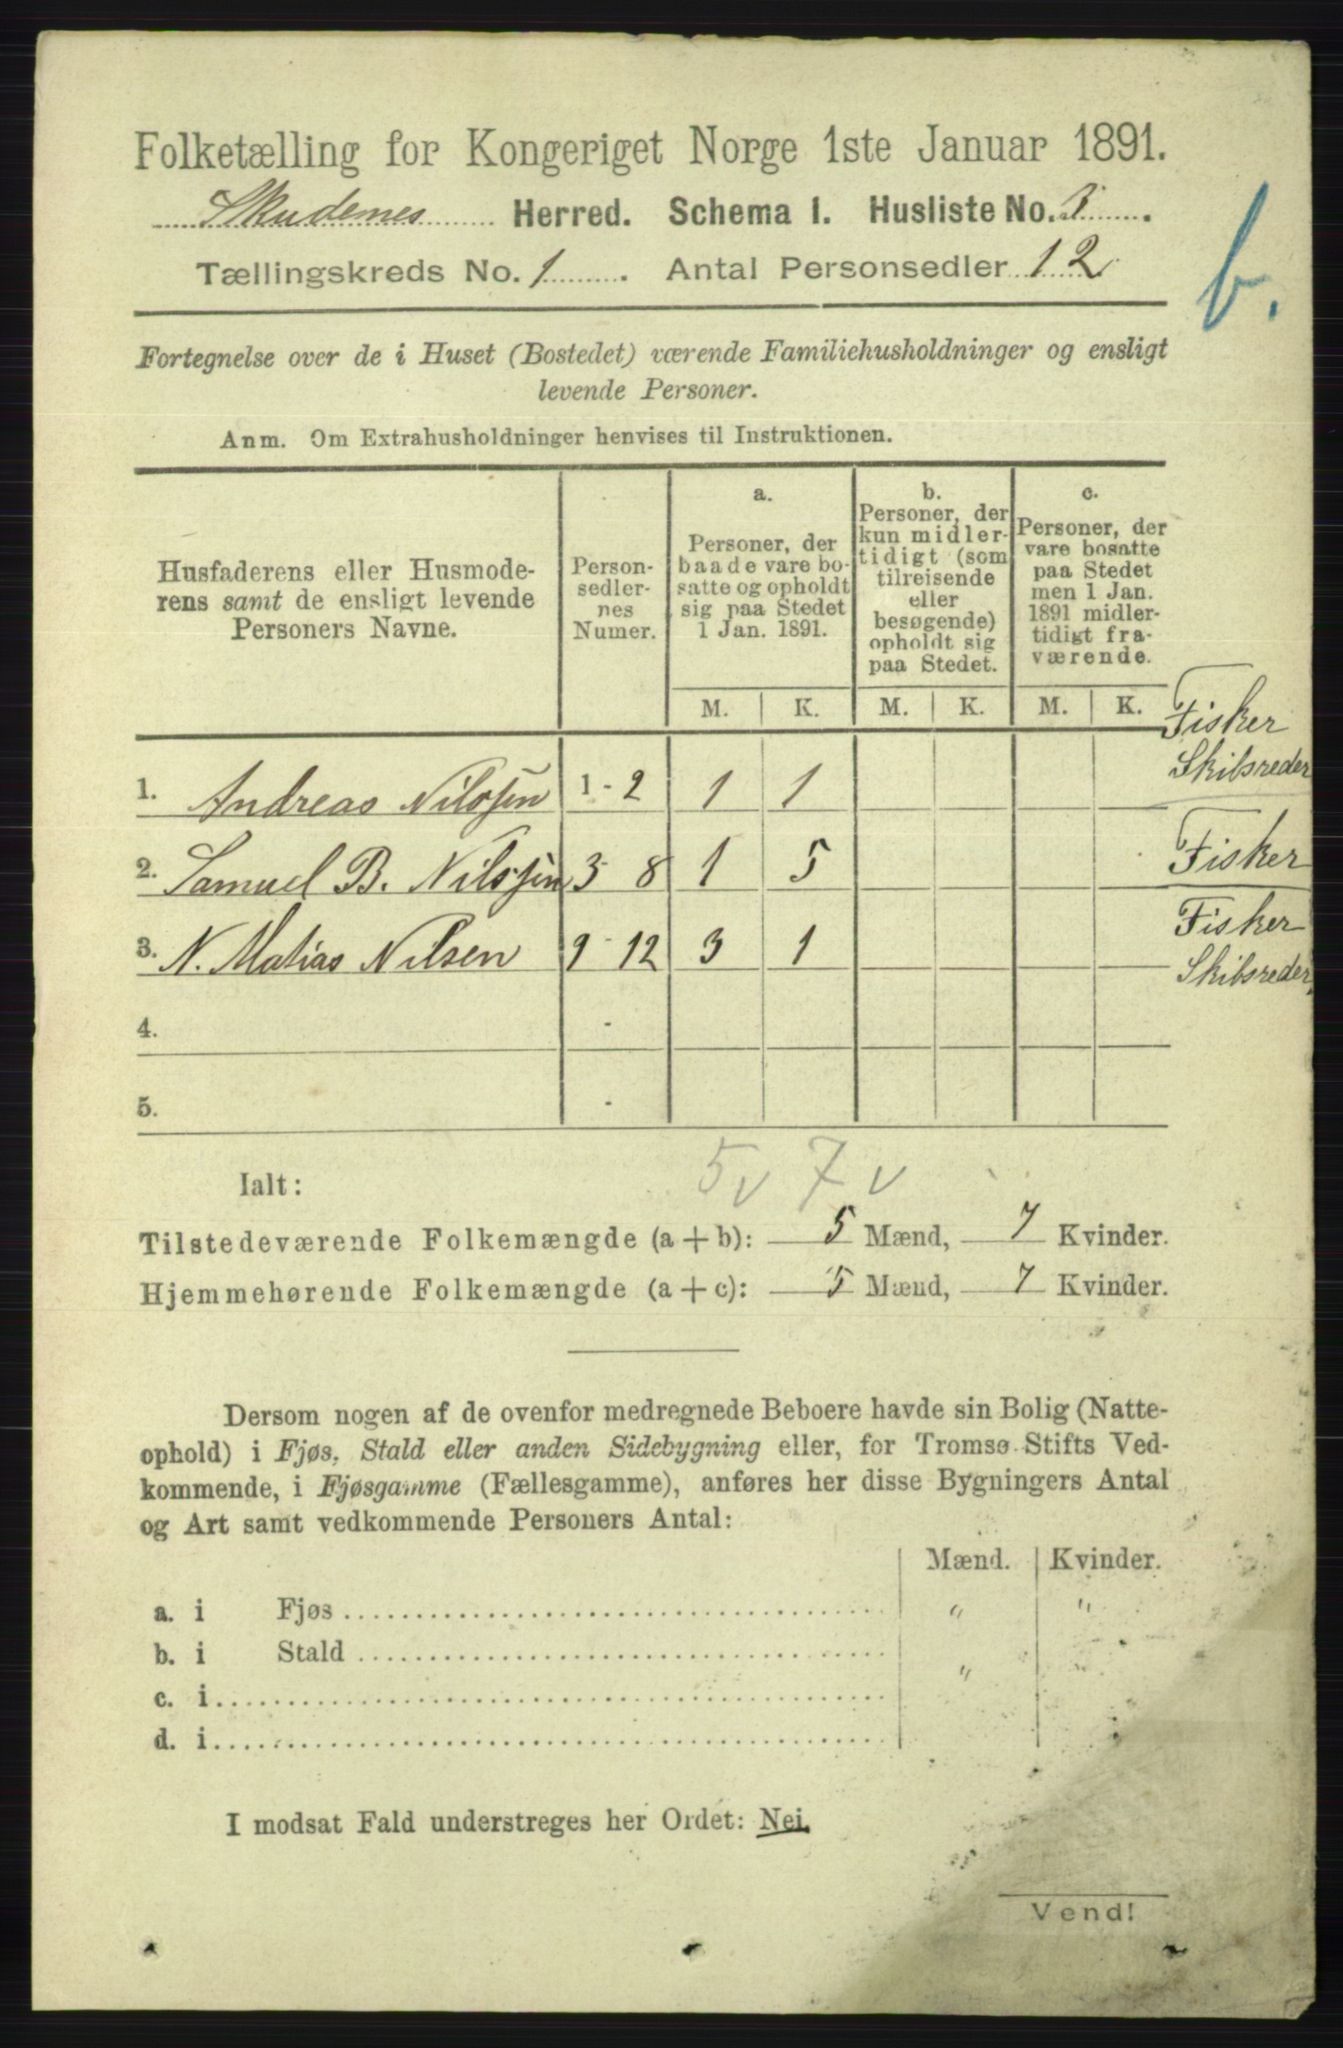 Folketælling for Kongeriget Norge 1ste Januar 1891.
Skudenes Herred. Schema I. Husliste No. 3.
Tællingskreds No. 1. Antal Personsedler 12
b.
Fortegnelse over de i Huset (Bostedet) værende Familiehusholdninger og ensligt
levende Personer.
Anm. Om Extrahusholdninger henvises til Instruktionen.
Husfaderens eller Husmode-
rens samt de ensligt levende
Personers Navne.
Person-
sedler-
nes
Numer.
a.
Personer, der
baade vare bo-
satte og opholdt
sig paa Stedet
1 Jan. 1891.
b.
Personer, der
kun midler-
tidigt (som
tilreisende
eller
besøgende)
opholdt sig
paa Stedet.
c.
Personer, der
vare bosatte
paa Stedet
men 1 Jan.
1891 midler-
tidigt fra-
værende.
M. K. M. K. M. K.
1. Andreas Nilssen 1 - 2 1 1 Fisker
Skibsreder
2. Samuel B. Nilssen 3 - 8 1 5 Fisker
3. N. Matias Nilsen 9 - 12 3 1 Fisker
Skibsreder.
4. -
5. -
5 v 7 v
Ialt:
Tilstedeværende Folkemængde (a + b): 5 Mænd, 7 Kvinder.
Hjemmehørende Folkemængde (a + c): 5 Mænd, 7 Kvinder.
Dersom nogen af de ovenfor medregnede Beboere havde sin Bolig (Natte-
ophold) i Fjøs, Stald eller anden Sidebygning eller, for Tromsø Stifts Ved-
kommende, i Fjøsgamme (Fællesgamme), anføres her disse Bygningers Antal
og Art samt vedkommende Personers Antal:
Mænd. Kvinder.
a. i Fjøs " "
b. i Stald "
c. i
d. i
I modsat Fald understreges her Ordet: Nei.
Vend!